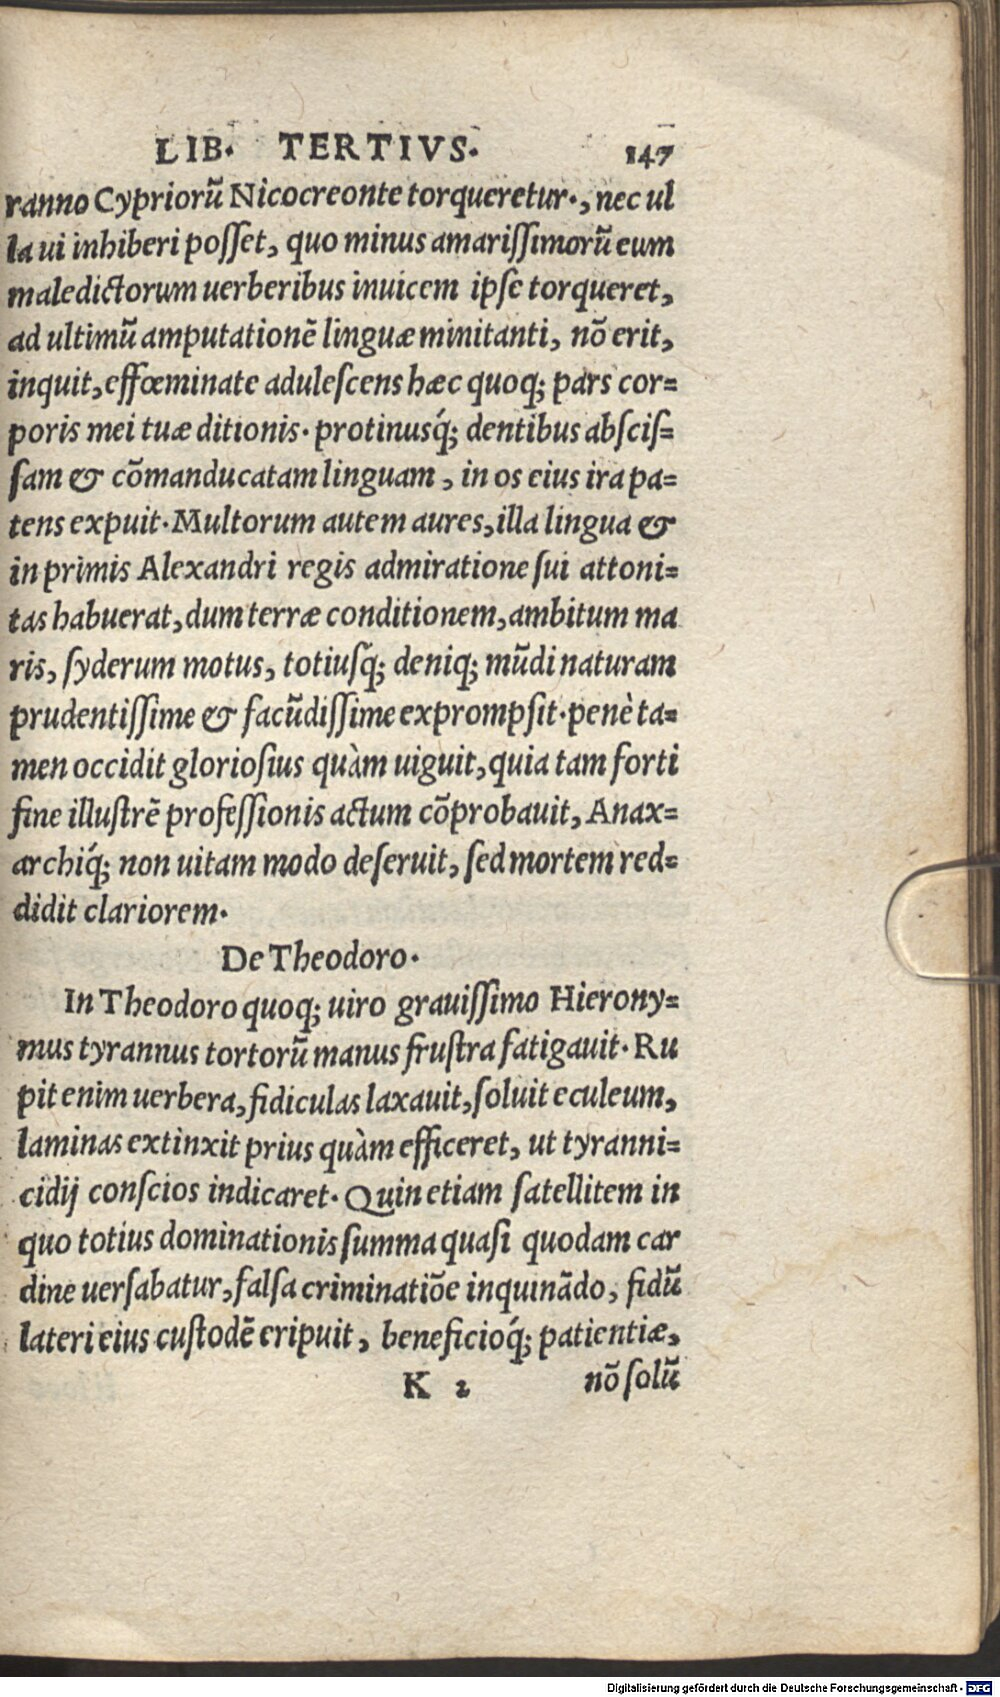 LIB. TERTIVS. 147
ranno Cypriorũ Nicocreonte torqueretur., nec ul
la ui inhiberi posset, quo minus amarissimorũ eum
maledictorum uerberibus inuicem ipse torqueret,
ad ultimũ amputationẽ linguæ minitanti, nõ erit,
inquit, effœminate adulescens hæc quoq; pars cor=
poris mei tuæ ditionis. protinusq́; dentibus abscis=
sam & cõmanducatam linguam, in os eius ira pa=
tens expuit. Multorum autem aures, illa lingua &
in primis Alexandri regis admiratione sui attoni=
tas habuerat, dum terræ conditionem, ambitum ma
ris, syderum motus, totiusq́; deniq; mũdi naturam
prudentissime & facũdissime exprompsit. penè ta=
men occidit gloriosius quàm uiguit, quia tam forti
fine illustrẽ professionis actum cõprobauit, Anax=
archiq́; non uitam modo deseruit, sed mortem red=
didit clariorem.
De Theodoro.
In Theodoro quoq; uiro grauissimo Hierony=
mus tyrannus tortorũ manus frustra fatigauit. Ru
pit enim uerbera, fidiculas laxauit, soluit eculeum,
laminas extinxit prius quàm efficeret, ut tyranni=
cidij conscios indicaret. Quin etiam satellitem in
quo totius dominationis summa quasi quodam car
dine uersabatur, falsa criminatiõe inquinãdo, fidũ
lateri eius custodẽ eripuit, beneficioq́; patientiæ,
K 2 nõ solũ
Digitalisierung gefördert durch die Deutsche Forschungsgemeinschaft - DFG